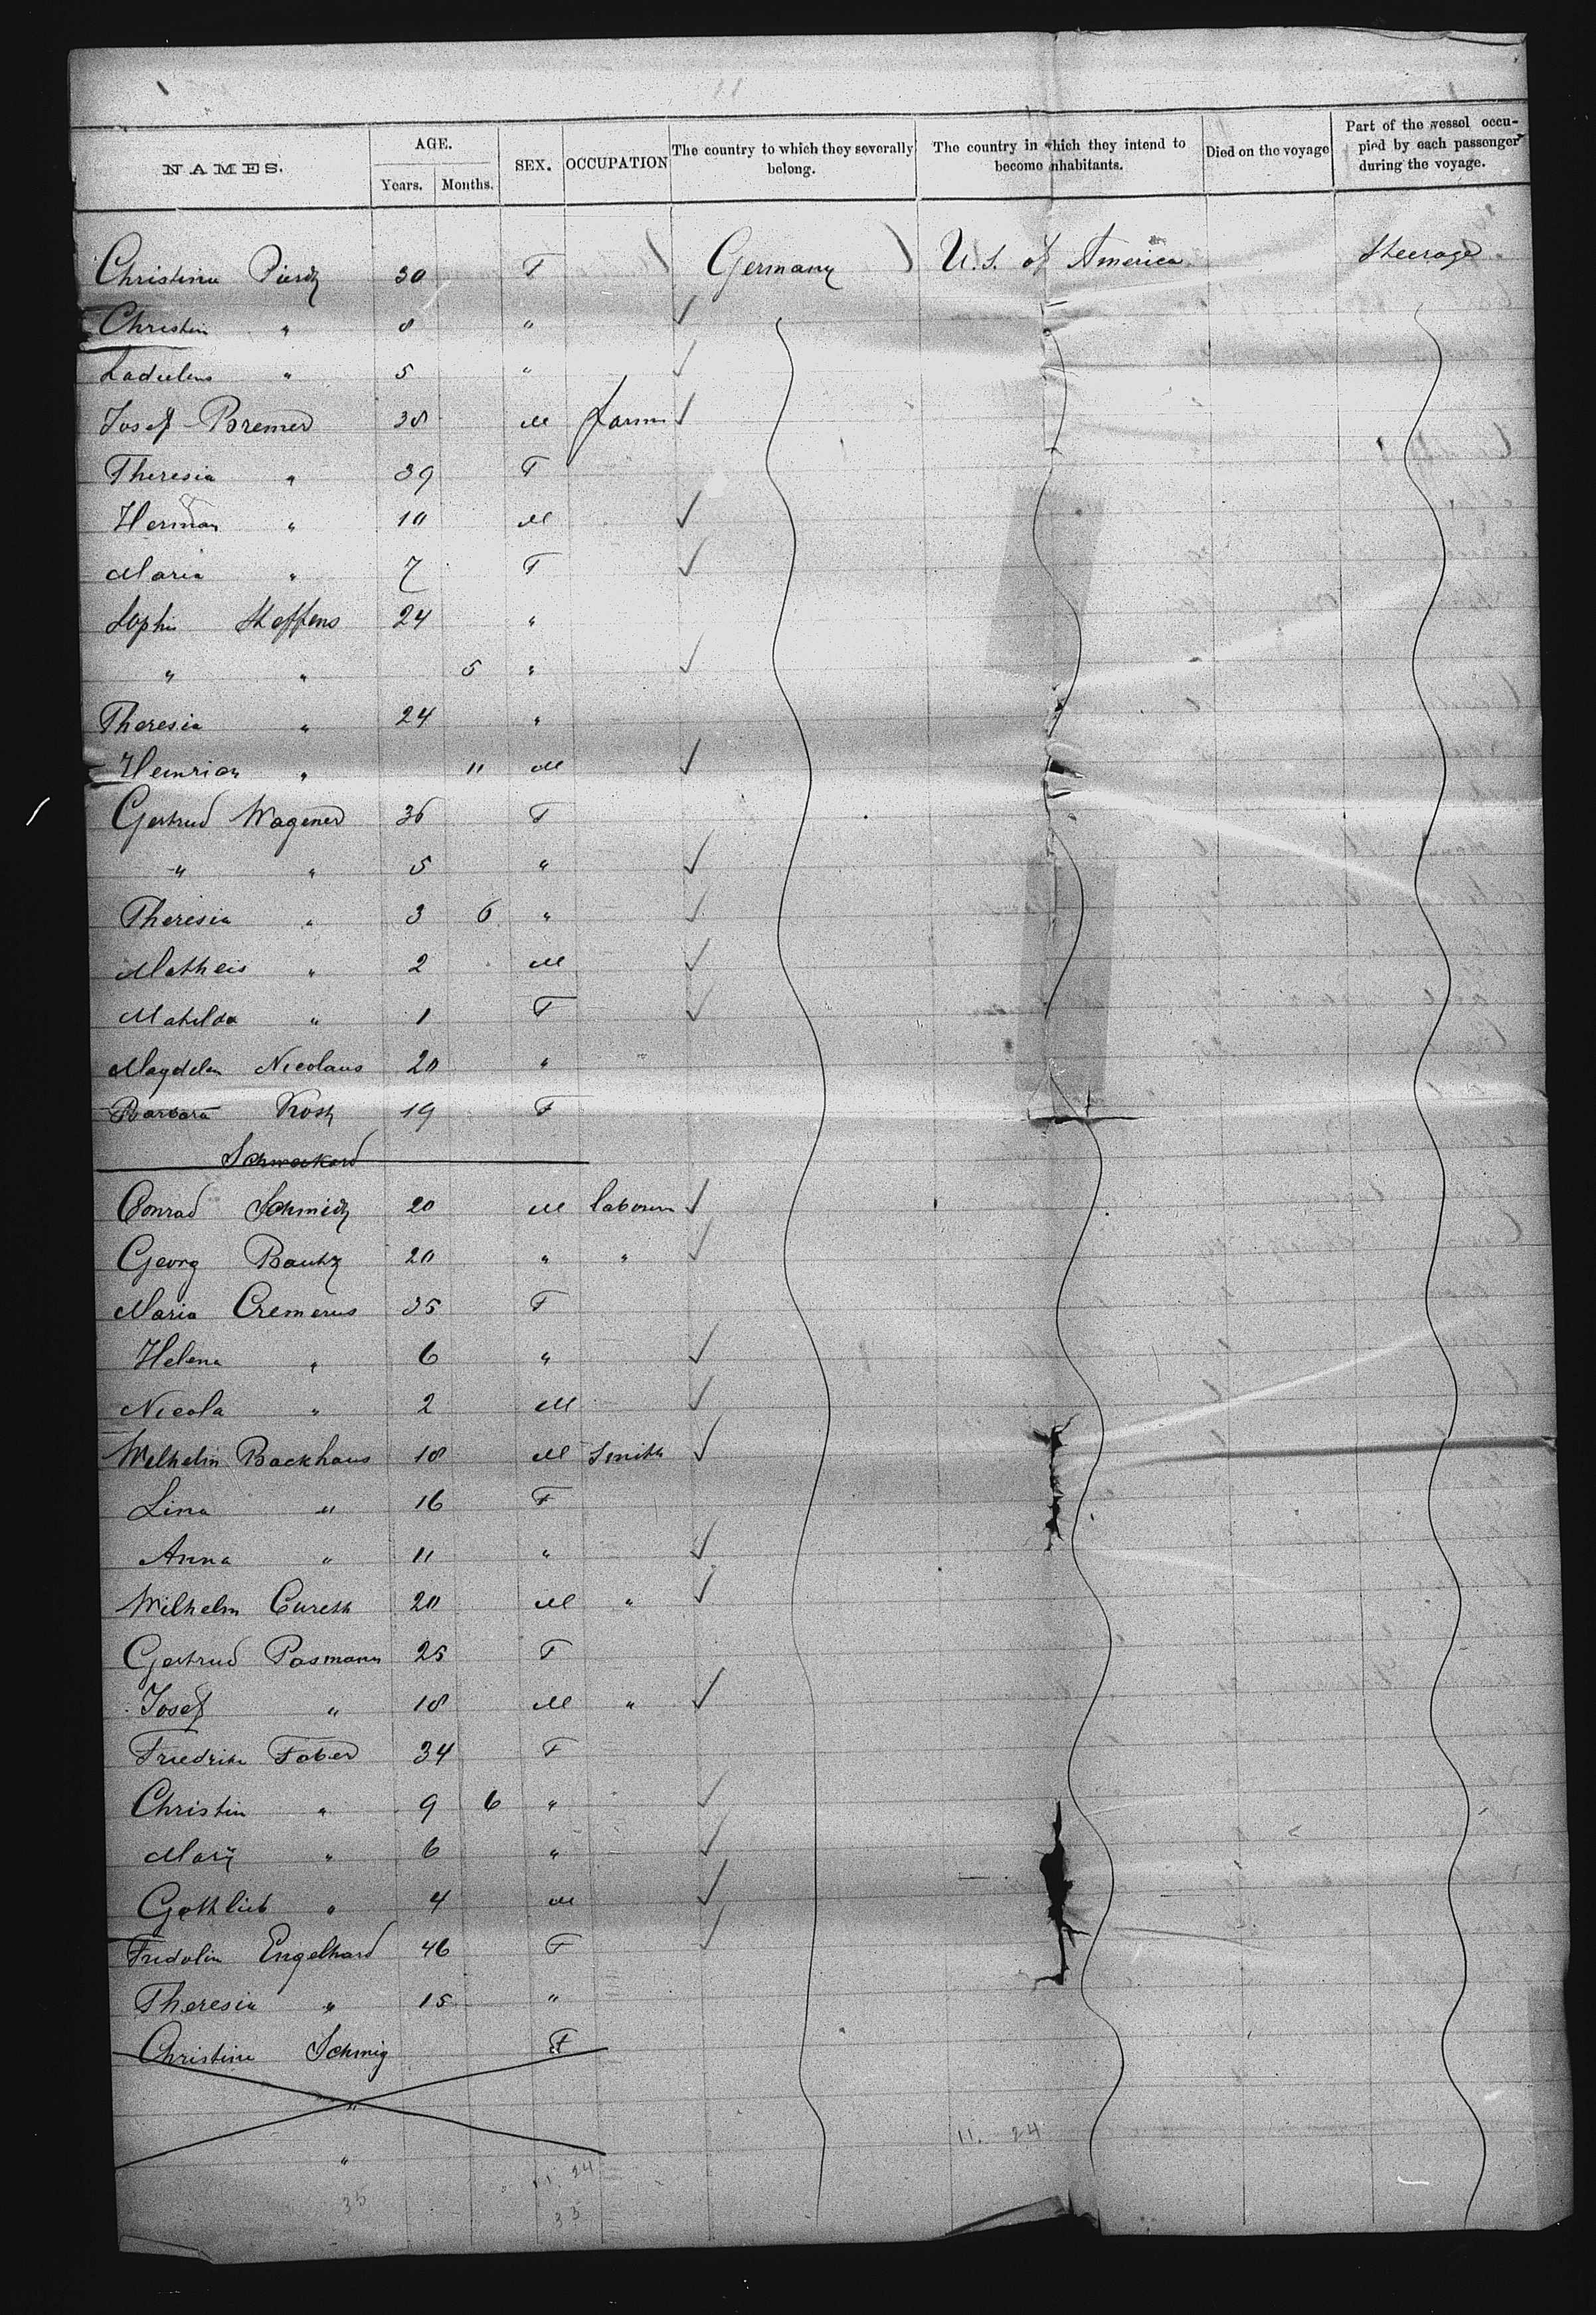 NAMES. AGE. SEX. OCCUPATION The country to which they severally belong. The country in which they intend to become inhabitants. Died on the voyage Part of the vessel occupied by each passenger during the voyage.
Years. Months.
Christine 30 F Germany U.S. of America Steerage
Christin " 8 "
" 5 "
Josef Bremer 38 M farm
Theresia " 39 F
Herman " 10 M
Maria " 7 F
Sophie Steffens 24 "
" " 5 "
Theresia " 24 "
Heinrich " 11 M
Gertrud Wagener 36 F
" " 5 "
Theresia " 3 6 "
Matheis " 2 M
Mathilda " 1 F
Magdelen Nicolaus 20 "
Barbara 19 F
Conrad Schmidt 20 M laborer
Georg Bautz 20 " "
Maria Cremerus 35 F
Helena " 6 "
Nicola " 2 M
Wilhelm Backhaus 18 M Smith
Lina " 16 F
Anna " 11 "
Wilhelm Cureth 20 M "
Gertrud Pasmann 25 F
Josef " 18 M "
Friedrike Faber 34 F
Christin " 9 6 "
Mary " 6 "
Gottlieb " 4 M
Fridolin Engelhard 46 F
Theresia " 15 "
Christine Schmig F
"
"
11. 24
11. 24
35
35